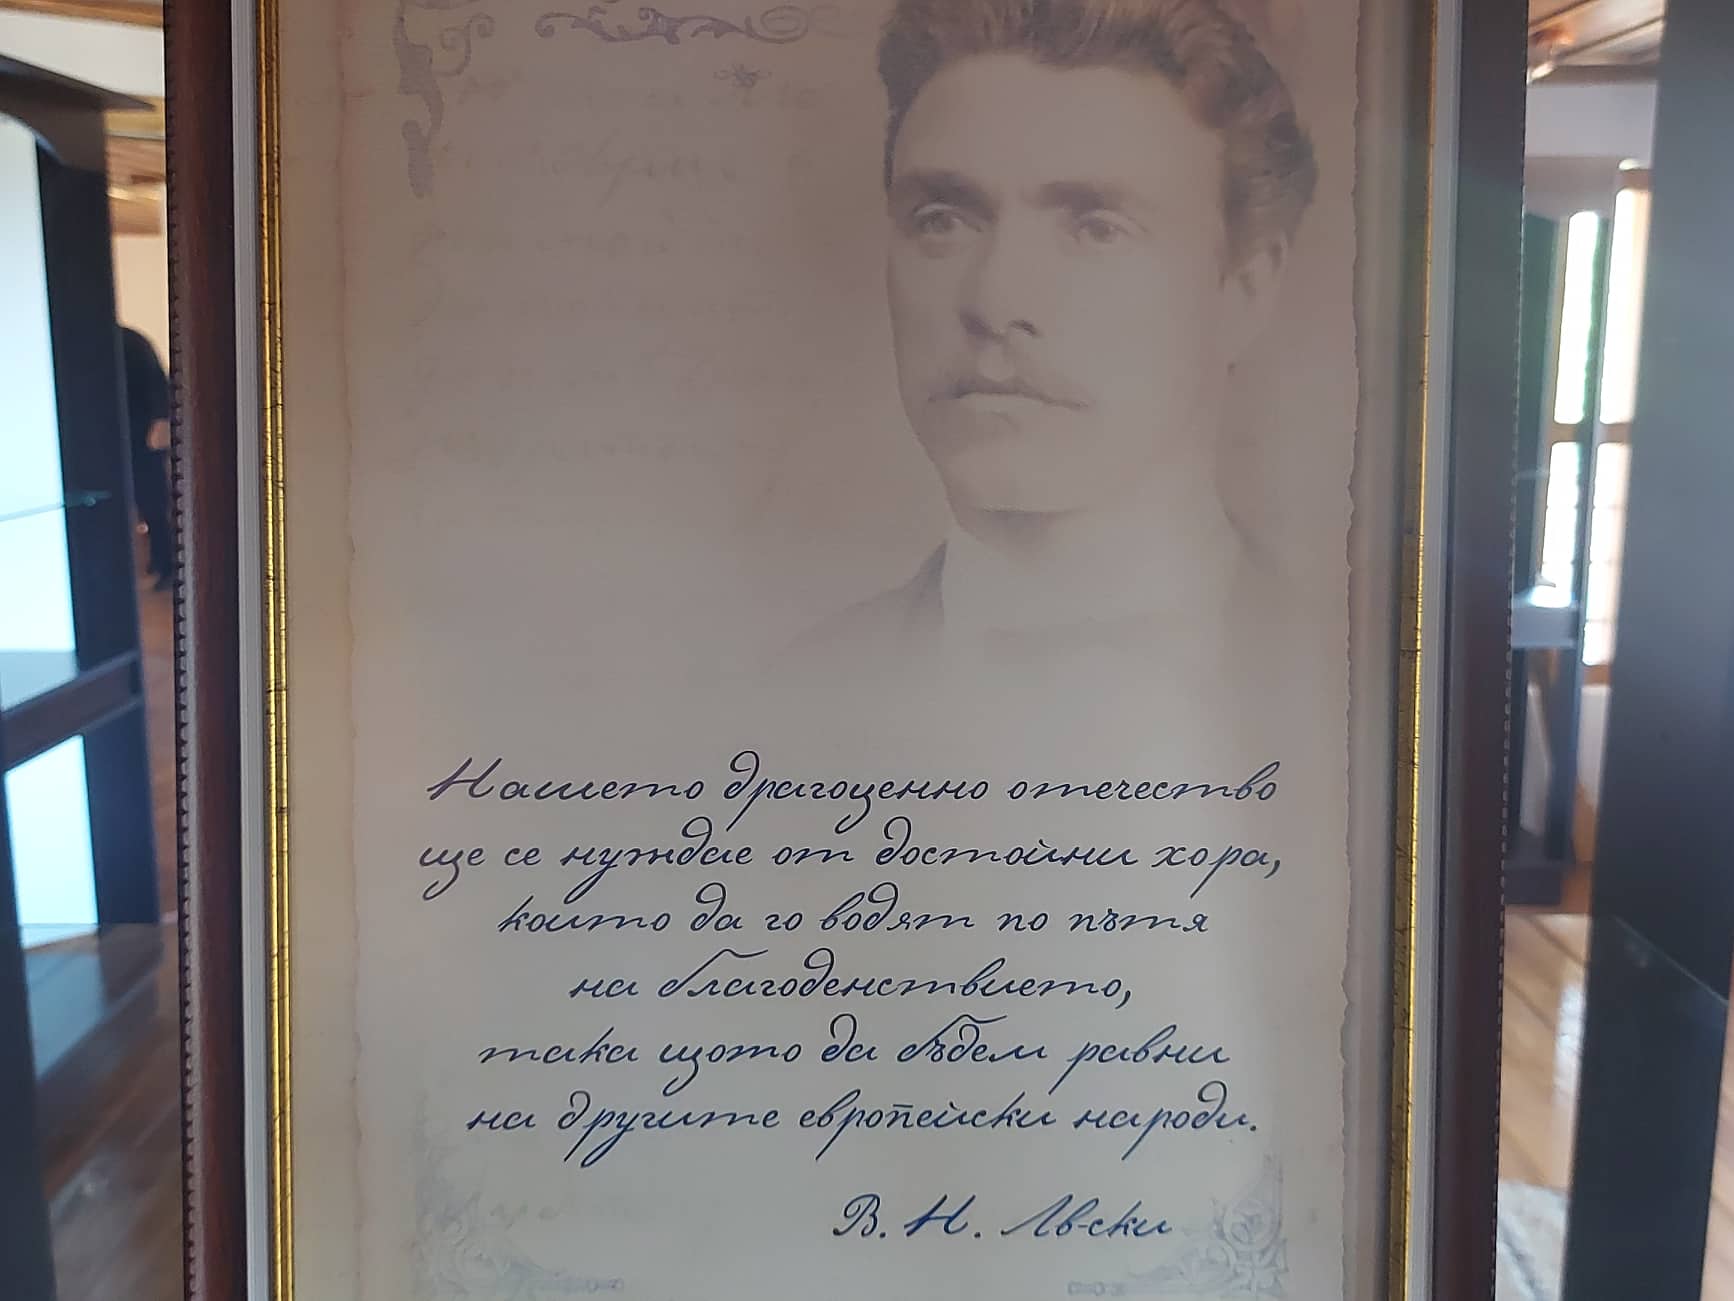 Нашето драгоценно отечество
ще се нуждае от достойни хора,
които да го водят по пътя
на благоденствието,
така щото да бъдем равни
на другите европейски народи.
В. Н. Лв-ски